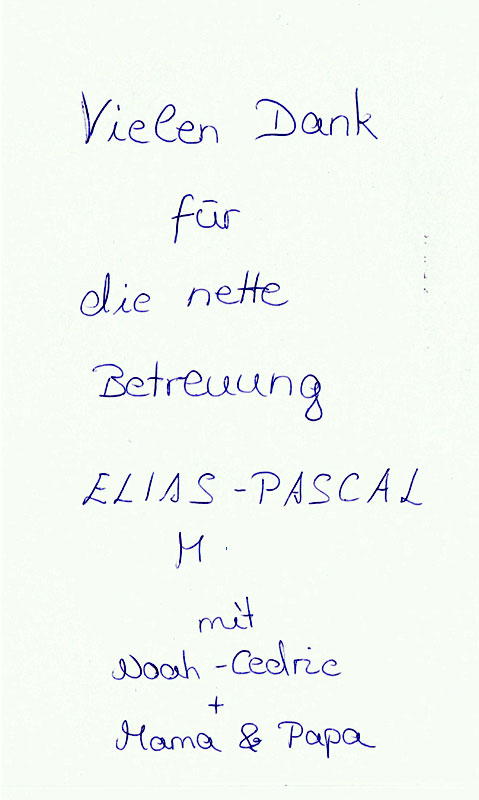 Vielen Dank
für
die nette
Betreuung
ELIAS-PASCAL
M.
mit
Noah-Cedric
+
Mama & Papa